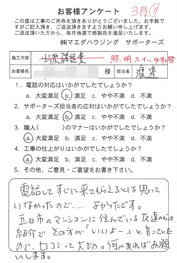 お客様アンケート
3月
この度は工事のご用命を頂きありがとうございました。お手数で
すがご記入頂き、ご返送頂きますようお願い申し上げます。
ご返送頂いた方から、毎月抽選で感謝品を進呈しております。
㈱マエダハウジング サポーターズ
施工内容 照明スイッチ取替
お客様名 様 担当者 渡辺
1. 電話の対応はいかがでしたでしょうか?
a. 大変満足 b. 満足 c. やや不満 d. 不満
2. サポーターズ担当者の応対はいかがでしたでしょうか?
a. 大変満足 b. 満足 c. やや不満 d. 不満
3. 職人( )のマナーはいかがでしたでしょうか?
a. 大変満足 b. 満足 c. やや不満 d. 不満
4. 工事の仕上がりはいかがでしたでしょうか?
a. 大変満足 b. 満足 c. やや不満 d. 不満
5. その他、ご意見・ご要望をお書き下さい。
電話して すぐに来てもらえるとは思って
いなかったので‥‥ よかったです。
五日市のマンションに住んでいる友達からの
紹介で その方が「いいよー」と言ってた
ので、口コミって大切。何かあればお願
いします。